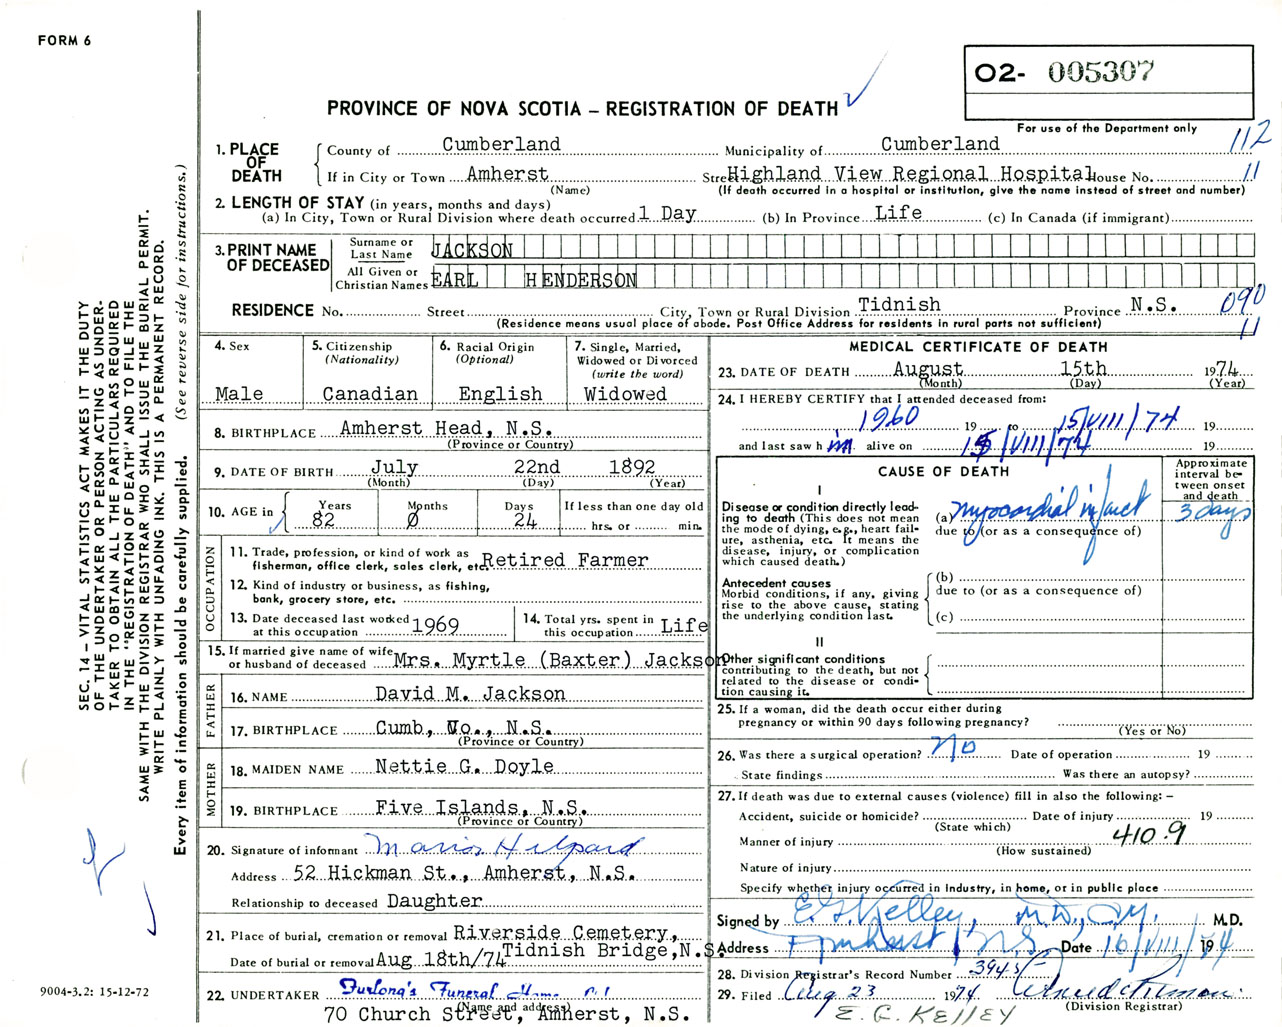 FORM 6
O2- 005307
PROVINCE OF NOVA SCOTIA – REGISTRATION OF DEATH
For use of the Department only
1. PLACE OF DEATH
County of Cumberland Municipality of Cumberland 112
If in City or Town Amherst Street Highland View Regional Hospital House No. 11
(Name) (If death occurred in a hospital or institution, give the name instead of street and number)
2. LENGTH OF STAY (in years, months and days)
(a) In City, Town or Rural Division where death occurred 1 Day (b) In Province Life (c) In Canada (if immigrant)
3. PRINT NAME OF DECEASED
Surname or Last Name JACKSON
All Given or Christian Names EARL HENDERSON
RESIDENCE No. Street City, Town or Rural Division Tidnish Province N.S. 090
(Residence means usual place of abode. Post Office Address for residents in rural parts not sufficient) 11
4. Sex
Male
5. Citizenship
(Nationality)
Canadian
6. Racial Origin
(Optional)
English
7. Single, Married,
Widowed or Divorced
(write the word)
Widowed
8. BIRTHPLACE Amherst Head, N.S.
(Province or Country)
9. DATE OF BIRTH July 22nd 1892
(Month) (Day) (Year)
10. AGE in Years Months Days If less than one day old
82 0 24 hrs. or min.
OCCUPATION
11. Trade, profession, or kind of work as
fisherman, office clerk, sales clerk, etc. Retired Farmer
12. Kind of industry or business, as fishing,
bank, grocery store, etc.
13. Date deceased last worked
at this occupation 1969
14. Total yrs. spent in
this occupation Life
15. If married give name of wife
or husband of deceased Mrs. Myrtle (Baxter) Jackson
FATHER
16. NAME David M. Jackson
17. BIRTHPLACE Cumb, Co., N.S.
(Province or Country)
MOTHER
18. MAIDEN NAME Nettie G. Doyle
19. BIRTHPLACE Five Islands, N.S.
(Province or Country)
20. Signature of informant Marion Hilpard
Address 52 Hickman St., Amherst, N.S.
Relationship to deceased Daughter
21. Place of burial, cremation or removal Riverside Cemetery,
Tidnish Bridge, N.S.
Date of burial or removal Aug 18th/74
22. UNDERTAKER Furlong's Funeral Home
(Name and address)
70 Church Street, Amherst, N.S.
MEDICAL CERTIFICATE OF DEATH
23. DATE OF DEATH August 15th 1974
(Month) (Day) (Year)
24. I HEREBY CERTIFY that I attended deceased from:
1960 19 to 15/VIII/74 19
and last saw h im alive on 15/VIII/74 19
CAUSE OF DEATH
Approximate
interval be-
tween onset
and death
I
Disease or condition directly lead-
ing to death (This does not mean
the mode of dying, e.g., heart fail-
ure, asthenia, etc. It means the
disease, injury, or complication
which caused death.)
(a) myocardial infarct 3 days
due to (or as a consequence of)
Antecedent causes
Morbid conditions, if any, giving
rise to the above cause, stating
the underlying condition last.
(b)
due to (or as a consequence of)
(c)
II
Other significant conditions
contributing to the death, but not
related to the disease or condi-
tion causing it.
25. If a woman, did the death occur either during
pregnancy or within 90 days following pregnancy?
(Yes or No)
26. Was there a surgical operation? No Date of operation 19
State findings Was there an autopsy?
27. If death was due to external causes (violence) fill in also the following: –
Accident, suicide or homicide? Date of injury 19
(State which)
Manner of injury 410.9
(How sustained)
Nature of injury
Specify whether injury occurred in Industry, in home, or in public place
Signed by E.G. Kelley, M.D., C.M. M.D.
Address Amherst, N.S. Date 16/VIII/74 19
28. Division Registrar's Record Number 3945
29. Filed Aug 23 1974
(Division Registrar)
E. G. KELLEY
SEC. 14 – VITAL STATISTICS ACT MAKES IT THE DUTY
OF THE UNDERTAKER OR PERSON ACTING AS UNDER-
TAKER TO OBTAIN ALL THE PARTICULARS REQUIRED
IN THE "REGISTRATION OF DEATH" AND TO FILE THE
SAME WITH THE DIVISION REGISTRAR WHO SHALL ISSUE THE BURIAL PERMIT.
WRITE PLAINLY WITH UNFADING INK. THIS IS A PERMANENT RECORD.
Every item of information should be carefully supplied. (See reverse side for instructions.)
9004-3.2: 15-12-72